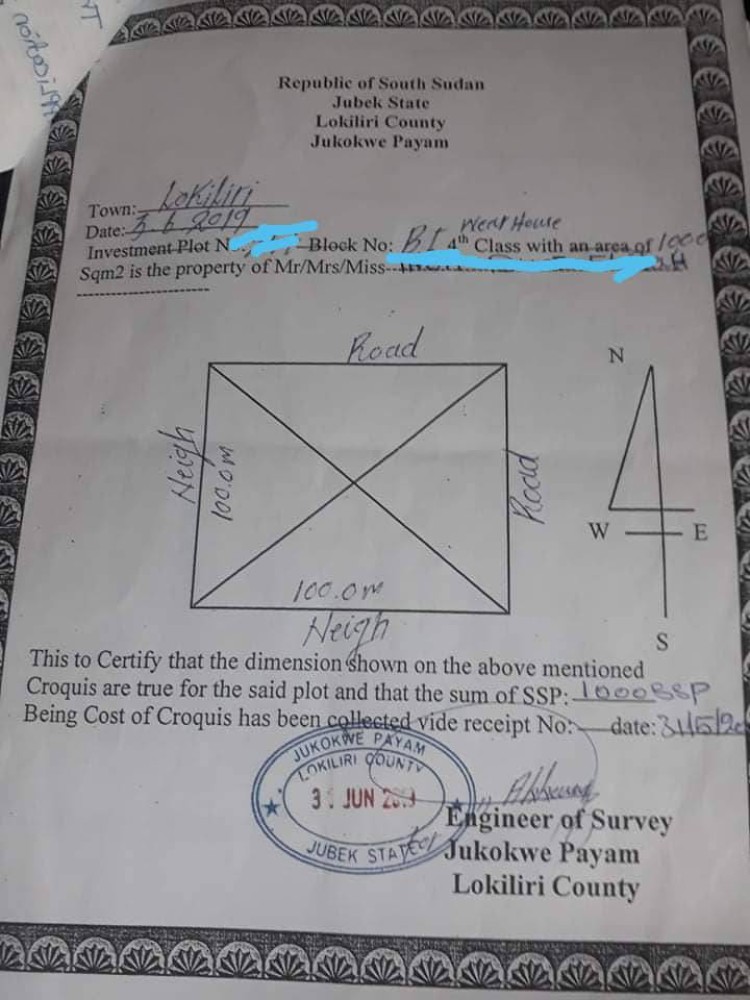 Republic of South Sudan
Jubek State
Lokiliri County
Jukokwe Payam
Town: Lokiliri
Date: 3 6 2019
Investment Plot N Block No: B I 4th Class with an area of 1000
Sqm2 is the property of Mr/Mrs/Miss
Road
N
Neigh
100.0m
Road
W E
100.0m
Neigh
S
This to Certify that the dimension shown on the above mentioned
Croquis are true for the said plot and that the sum of SSP: 1000SSP
Being Cost of Croquis has been collected vide receipt No: date:
JUKOKWE PAYAM
LOKILIRI COUNTY
JUN
JUBEK STATE
Engineer of Survey
Jukokwe Payam
Lokiliri County